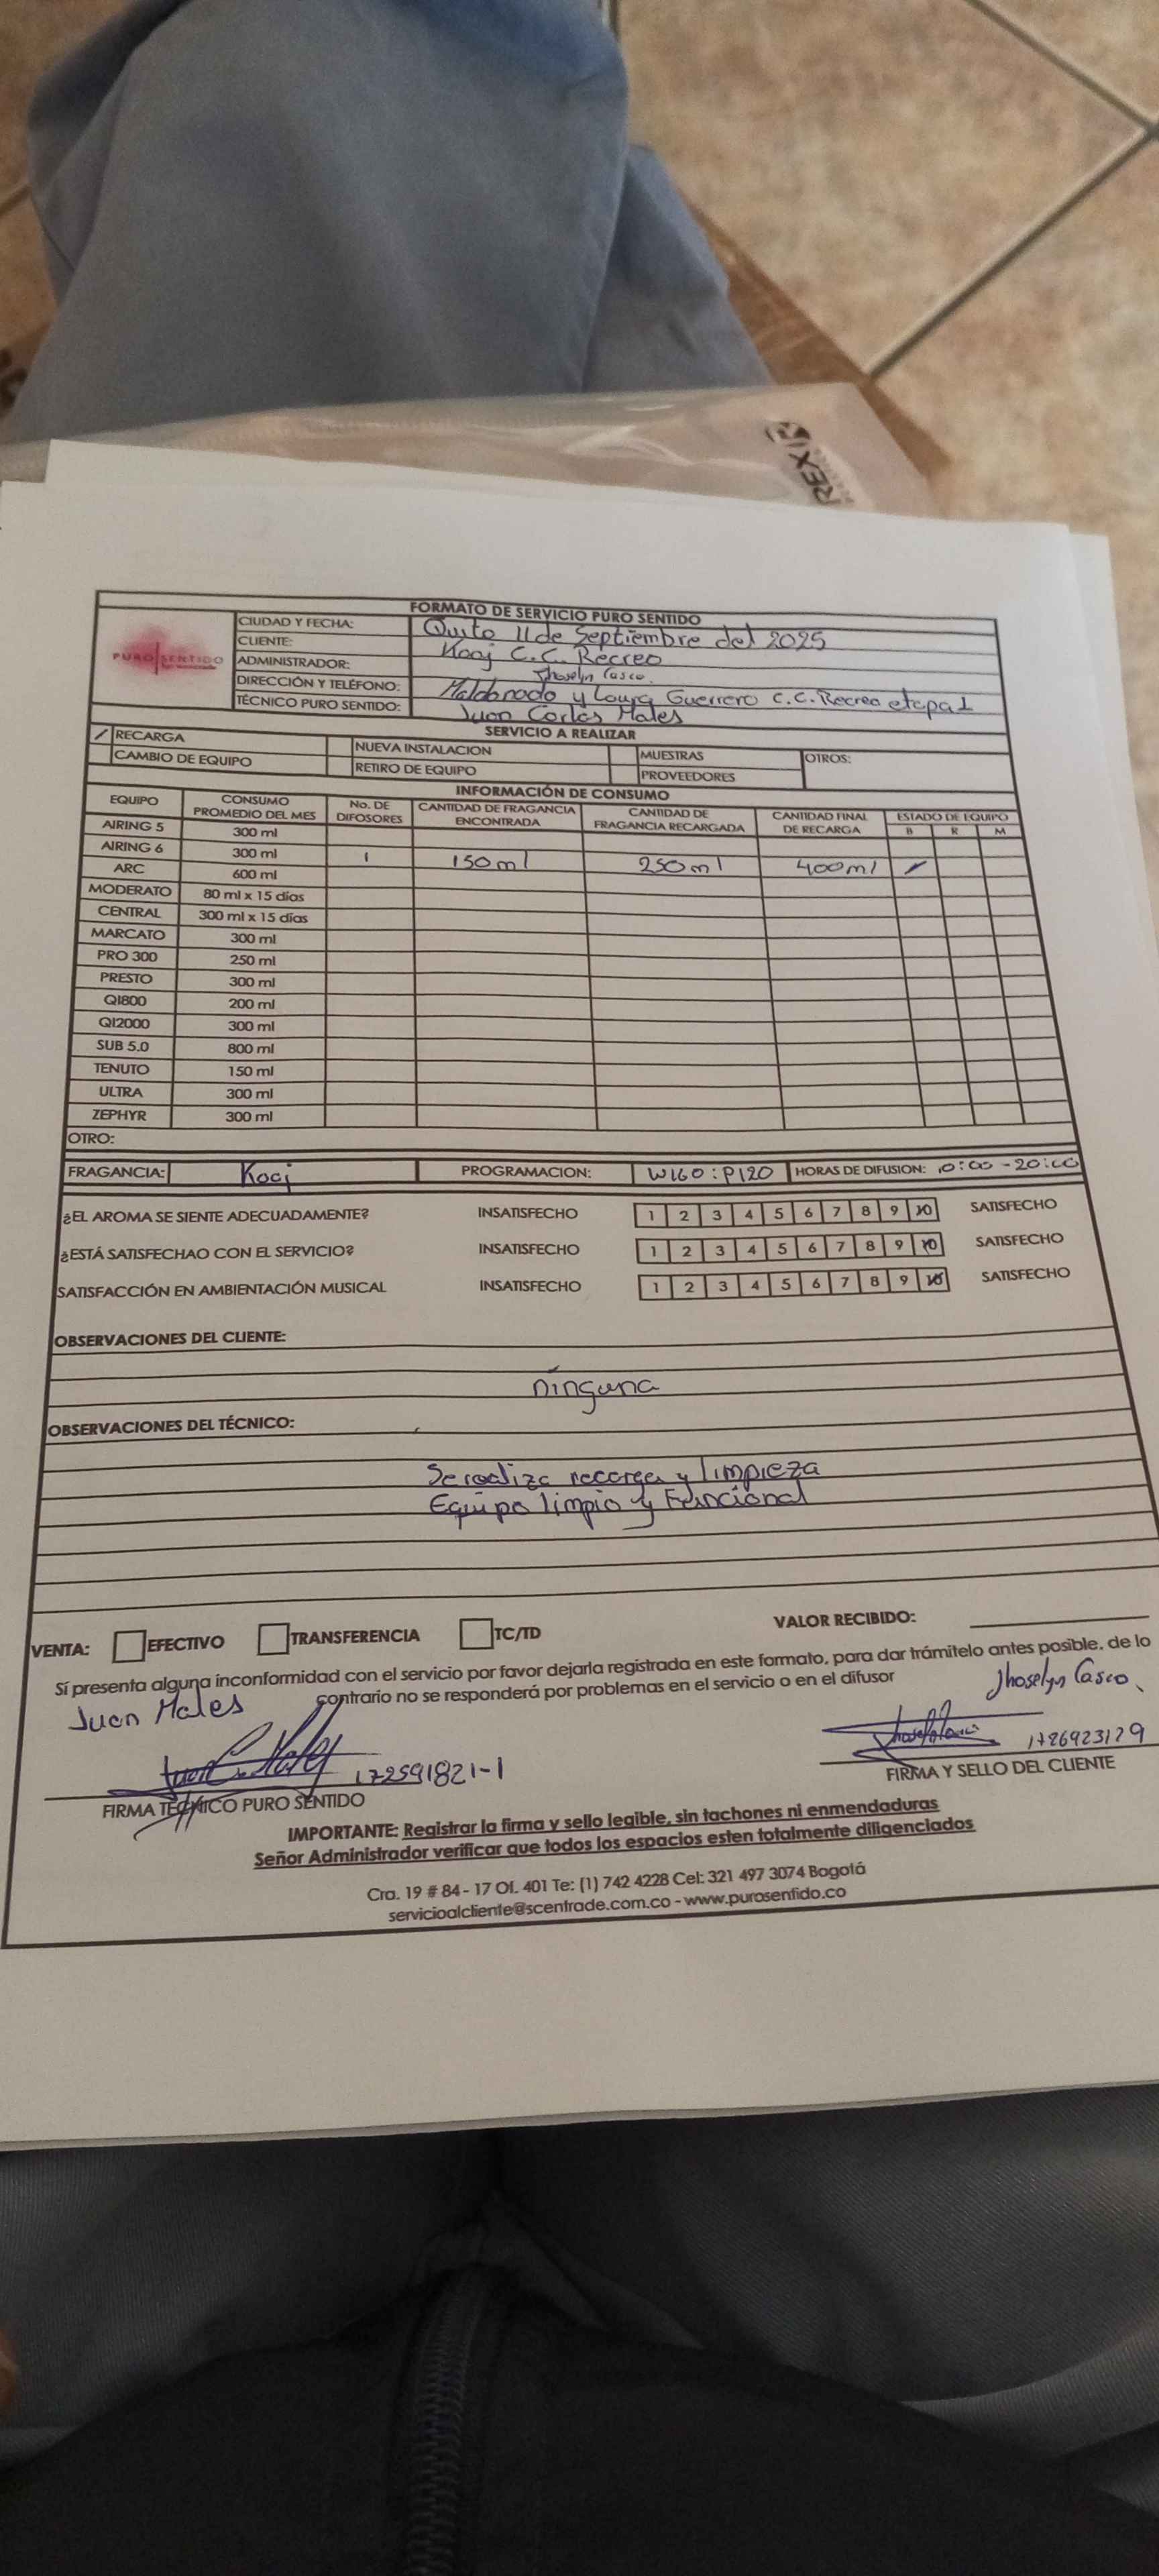 REX
FORMATO DE SERVICIO PURO SENTIDO
PURO SENTIDO
CIUDAD Y FECHA: Quito 11 de Septiembre del 2025
CLIENTE: Koaj C.C. Recreo
ADMINISTRADOR: Jhoselyn Casco.
DIRECCIÓN Y TELÉFONO: Maldonado y Laura Guerrero C.C. Recreo etapa 1
TÉCNICO PURO SENTIDO: Juan Carlos Males
SERVICIO A REALIZAR
/ RECARGA NUEVA INSTALACION MUESTRAS OTROS:
CAMBIO DE EQUIPO RETIRO DE EQUIPO PROVEEDORES
INFORMACIÓN DE CONSUMO
EQUIPO CONSUMO PROMEDIO DEL MES No. DE DIFOSORES CANTIDAD DE FRAGANCIA ENCONTRADA CANTIDAD DE FRAGANCIA RECARGADA CANTIDAD FINAL DE RECARGA ESTADO DE EQUIPO
B R M
AIRING 5 300 ml
AIRING 6 300 ml 1 150ml 250ml 400ml /
ARC 600 ml
MODERATO 80 ml x 15 días
CENTRAL 300 ml x 15 días
MARCATO 300 ml
PRO 300 250 ml
PRESTO 300 ml
QI800 200 ml
QI2000 300 ml
SUB 5.0 800 ml
TENUTO 150 ml
ULTRA 300 ml
ZEPHYR 300 ml
OTRO:
FRAGANCIA: Koaj PROGRAMACION: W160 : P120 HORAS DE DIFUSION: 10:00 - 20:00
¿EL AROMA SE SIENTE ADECUADAMENTE? INSATISFECHO 1 2 3 4 5 6 7 8 9 10 SATISFECHO
¿ESTÁ SATISFECHAO CON EL SERVICIO? INSATISFECHO 1 2 3 4 5 6 7 8 9 10 SATISFECHO
SATISFACCIÓN EN AMBIENTACIÓN MUSICAL INSATISFECHO 1 2 3 4 5 6 7 8 9 10 SATISFECHO
OBSERVACIONES DEL CLIENTE:
ninguna
OBSERVACIONES DEL TÉCNICO:
Se realiza recarga y limpieza
Equipo limpio y Funcional
VENTA: EFECTIVO TRANSFERENCIA TC/TD VALOR RECIBIDO:
Sí presenta alguna inconformidad con el servicio por favor dejarla registrada en este formato, para dar trámitelo antes posible, de lo
contrario no se responderá por problemas en el servicio o en el difusor
Juan Males Jhoselyn Casco.
172591821-1 1726923129
FIRMA TECNICO PURO SENTIDO FIRMA Y SELLO DEL CLIENTE
IMPORTANTE: Registrar la firma y sello legible, sin tachones ni enmendaduras
Señor Administrador verificar que todos los espacios esten totalmente diligenciados
Cra. 19 # 84 - 17 Of. 401 Te: (1) 742 4228 Cel: 321 497 3074 Bogotá
servicioalcliente@scentrade.com.co - www.purosentido.co